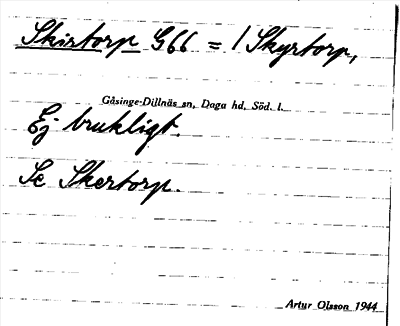 Skirtorp G66 = / Skyrtorp,
Gåsinge-Dillnäs sn, Daga hd, Söd. l.
Ej brukligt.
Se Skertorp.
Artur Olsson 1944